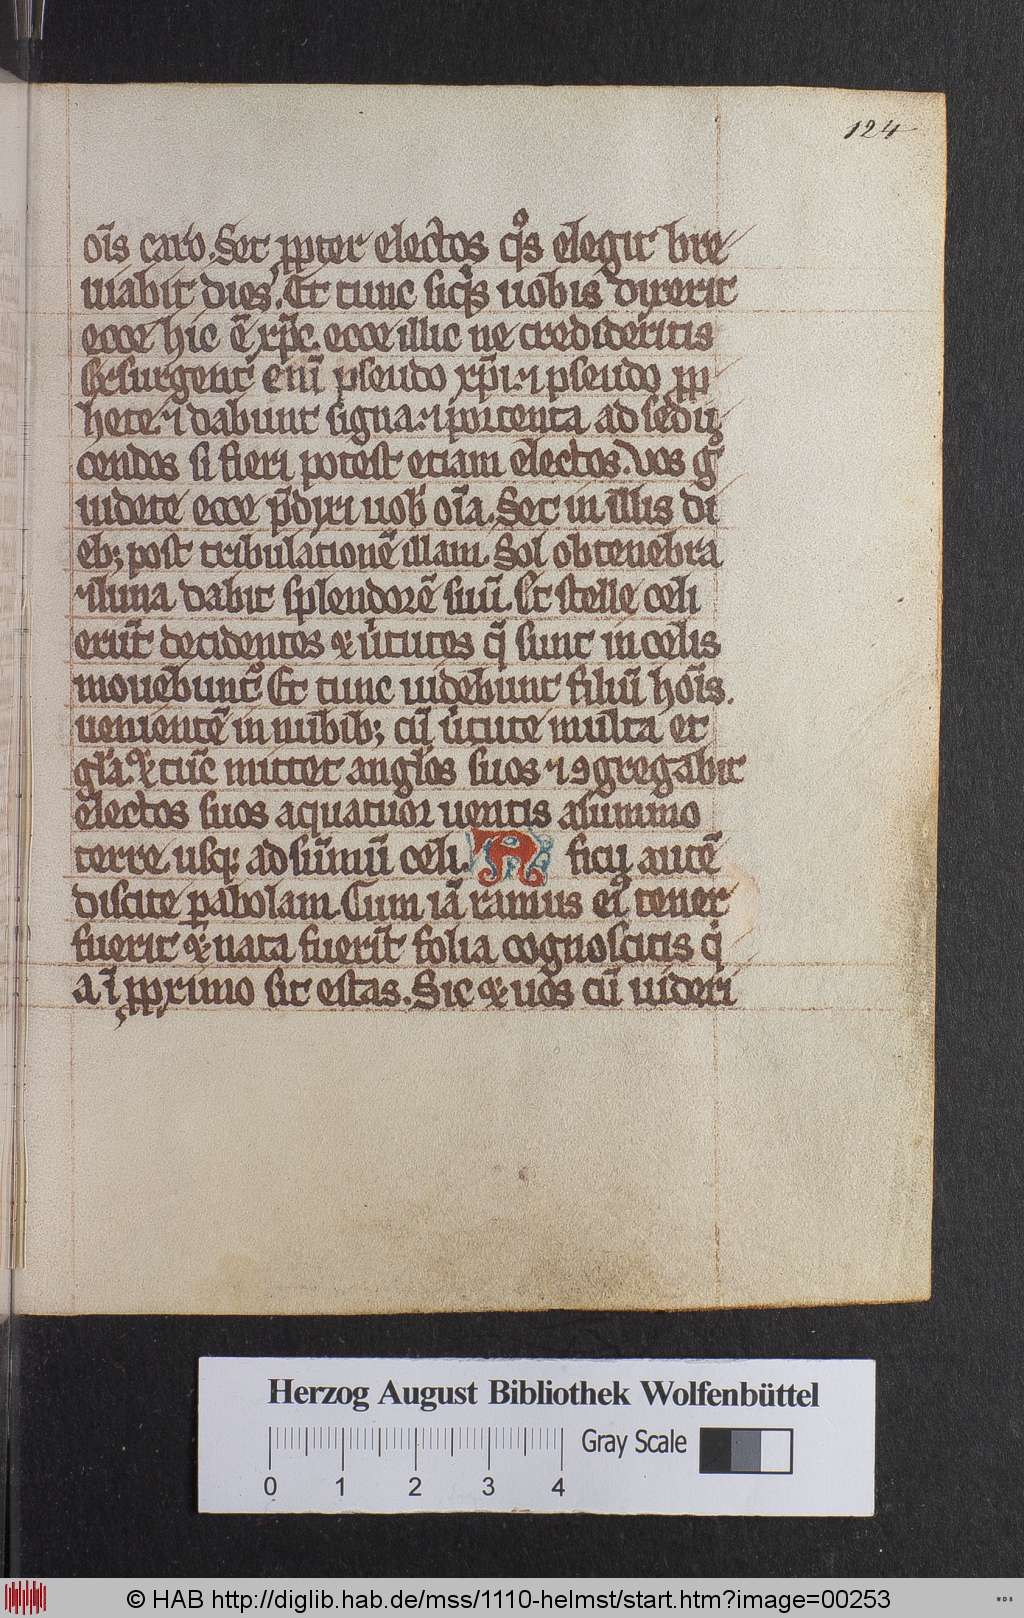 124
oīs caro. Set ꝓpter electos qͦs elegit bre
viabit dies. Et tunc siqͥs uobis dixerit
ecce hic ē xp̄c. ecce illic ne credideritis
Exsurgent eniū pseudo xp̄i ⁊ pseudo ꝓp
hete. ⁊ dabunt signa. ⁊ portenta ad sedu
cendos si fieri potest etiam electos. Vos gͦ
uidete ecce p̄dixi uob̄ oīa. Set in illis di
eb; post tribulationē illam. Sol obtenebra
⁊ luna dabit splendorē suū. Et stelle celi
erūt decidentes & u̓tutes q̄ sunt in celis
mouebunt᷑ Et tunc uidebunt filiū hoīs.
uenientē in nubib; cū u̓tute multa et
gl̄a. & tūc mittet angl̓os suos ⁊ ꝯgregabit
electos suos aquatuor uentis asummo
terre usq; ad sūmū celi. A ficu autē
discite ꝑabolam. Cum iā ramus ei᷒ tener
fuerit & nata fuerīt folia cognoscitis q̓
a ī ꝓximo sit estas. Sic & uos cū uideri
Herzog August Bibliothek Wolfenbüttel
0 1 2 3 4 Gray Scale
© HAB http://diglib.hab.de/mss/1110-helmst/start.htm?image=00253